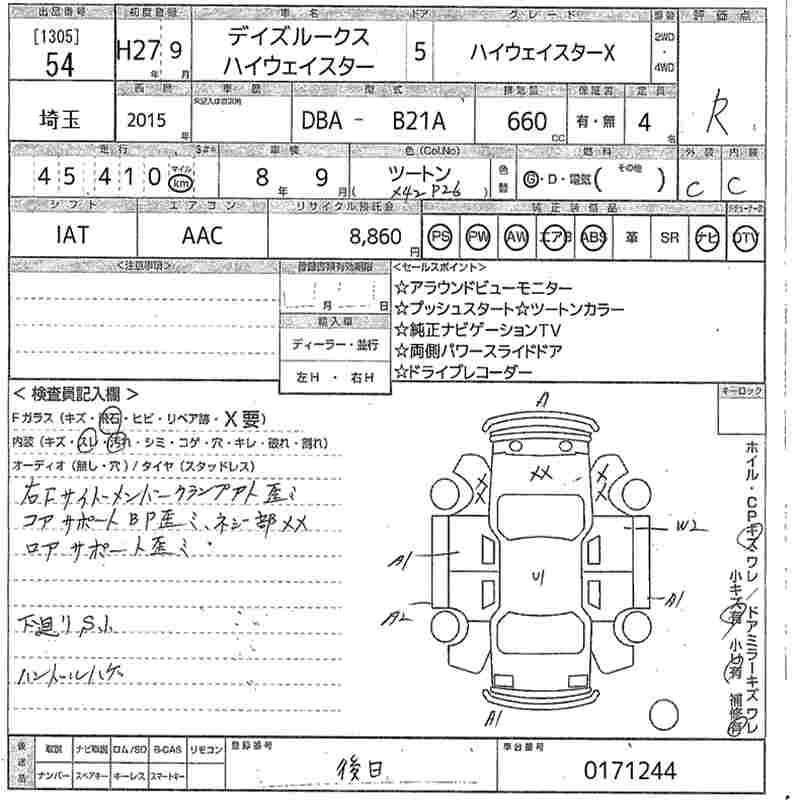 出品番号 初度登録 車名 ドア グレード 駆動 評価点
[1305]
54 H27年 9月 デイズルークス
ハイウェイスター 5 ハイウェイスターX 2WD・4WD R
西暦 車歴 型式 排気量 保証書 定員
埼玉 2015年 DBA - B21A 660cc 有・無 4名
走行 マイル km 車検 色(Col.No) 色替 燃料 外装 内装
45410 8年 9月 ツートン
(X42 P26) G・D・電気( その他 ) C C
シフト エアコン リサイクル預託金 純正装備品
IAT AAC 8,860円 PS PW AW エアB ABS 革 SR ナビ DTV
<注意事項> 登録書類有効期限 <セールスポイント>
月 日
輸入車
ディーラー・並行
左H ・ 右H
☆アラウンドビューモニター
☆プッシュスタート☆ツートンカラー
☆純正ナビゲーションTV
☆両側パワースライドドア
☆ドライブレコーダー
キーロック
< 検査員記入欄 >
Fガラス(キズ・飛石・ヒビ・リペア跡・X要)
内装(キズ・スレ・汚れ・シミ・コゲ・穴・キレ・破れ・割れ)
オーディオ(無し・穴)/タイヤ(スタッドレス)
右Fサイドメンバークランプアト歪ミ
コアサポートBP歪ミ、ネジ一部XX
ロアサポート歪ミ
下廻りS.I.
ハンドルハゲ
A
XX
XX
XX
W2
A1
U1
A1
A2
A1
ホイル・CPキズワレ/ドアミラーキズワレ
小キズ有 小U有 補修有
後送品 取説 ナビ取説 ロム/SD B-CAS リモコン 登録番号 車台番号
ナンバー スペアキー キーレス スマートキー 後日 0171244